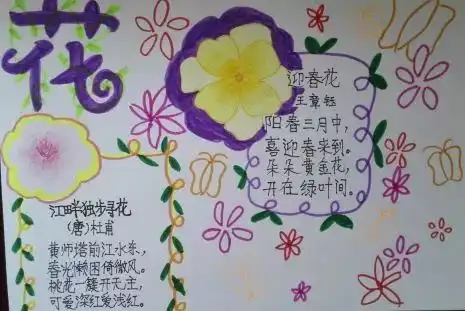 花
迎春花
王章钰
阳春三月中，
喜迎春来到。
朵朵黄金花，
开在绿叶间。
江畔独步寻花
(唐)杜甫
黄师塔前江水东，
春光懒困倚微风。
桃花一簇开无主，
可爱深红爱浅红。